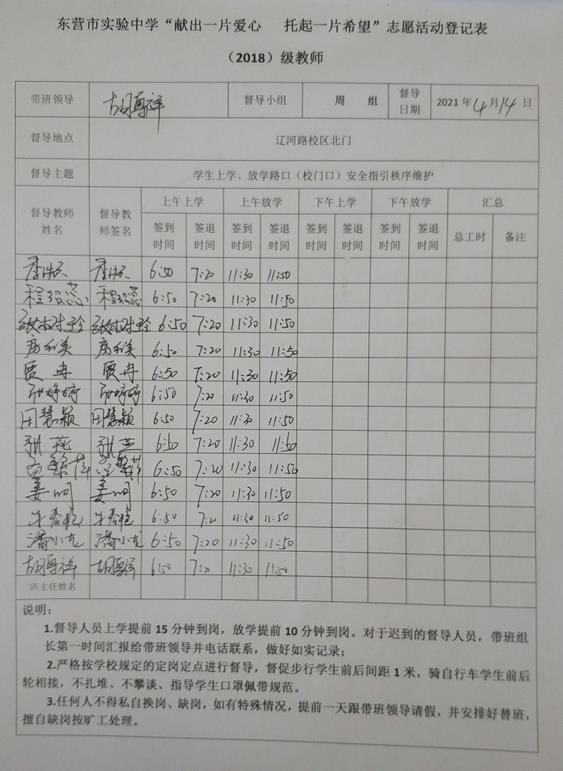 东营市实验中学“献出一片爱心 托起一片希望”志愿活动登记表
（2018）级教师
带班领导 胡尊祥 督导小组 周 组 督导日期 2021年4月14日
督导地点 辽河路校区北门
督导主题 学生上学、放学路口（校门口）安全指引秩序维护
督导教师姓名 督导教师签名 上午上学 上午放学 下午上学 下午放学 汇总
签到时间 签退时间 签到时间 签退时间 签到时间 签退时间 签到时间 签退时间 总工时 备注
6:50 7:20 11:30 11:50
6:50 7:20 11:30 11:50
6:50 7:20 11:30 11:50
6:50 7:20 11:30 11:50
贾冉 贾冉 6:50 7:20 11:30 11:50
6:50 7:20 11:30 11:50
田慧颖 田慧颖 6:50 7:20 11:30 11:50
张燕 张燕 6:50 7:20 11:30 11:50
6:50 7:20 11:30 11:50
姜明 姜明 6:50 7:20 11:30 11:50
6:50 7:20 11:30 11:50
潘小龙 潘小龙 6:50 7:20 11:30 11:50
胡尊祥 胡尊祥 6:50 7:20 11:30 11:50
班主任姓名
说明：
1.督导人员上学提前15分钟到岗，放学提前10分钟到岗。对于迟到的督导人员，带班组
长第一时间汇报给带班领导并电话联系，做好如实记录；
2.严格按学校规定的定岗定点进行督导，督促步行学生前后间距1米，骑自行车学生前后
轮相接，不扎堆、不攀谈、指导学生口罩佩带规范。
3.任何人不得私自换岗、缺岗，如有特殊情况，提前一天跟带班领导请假，并安排好替班，
擅自缺岗按旷工处理。